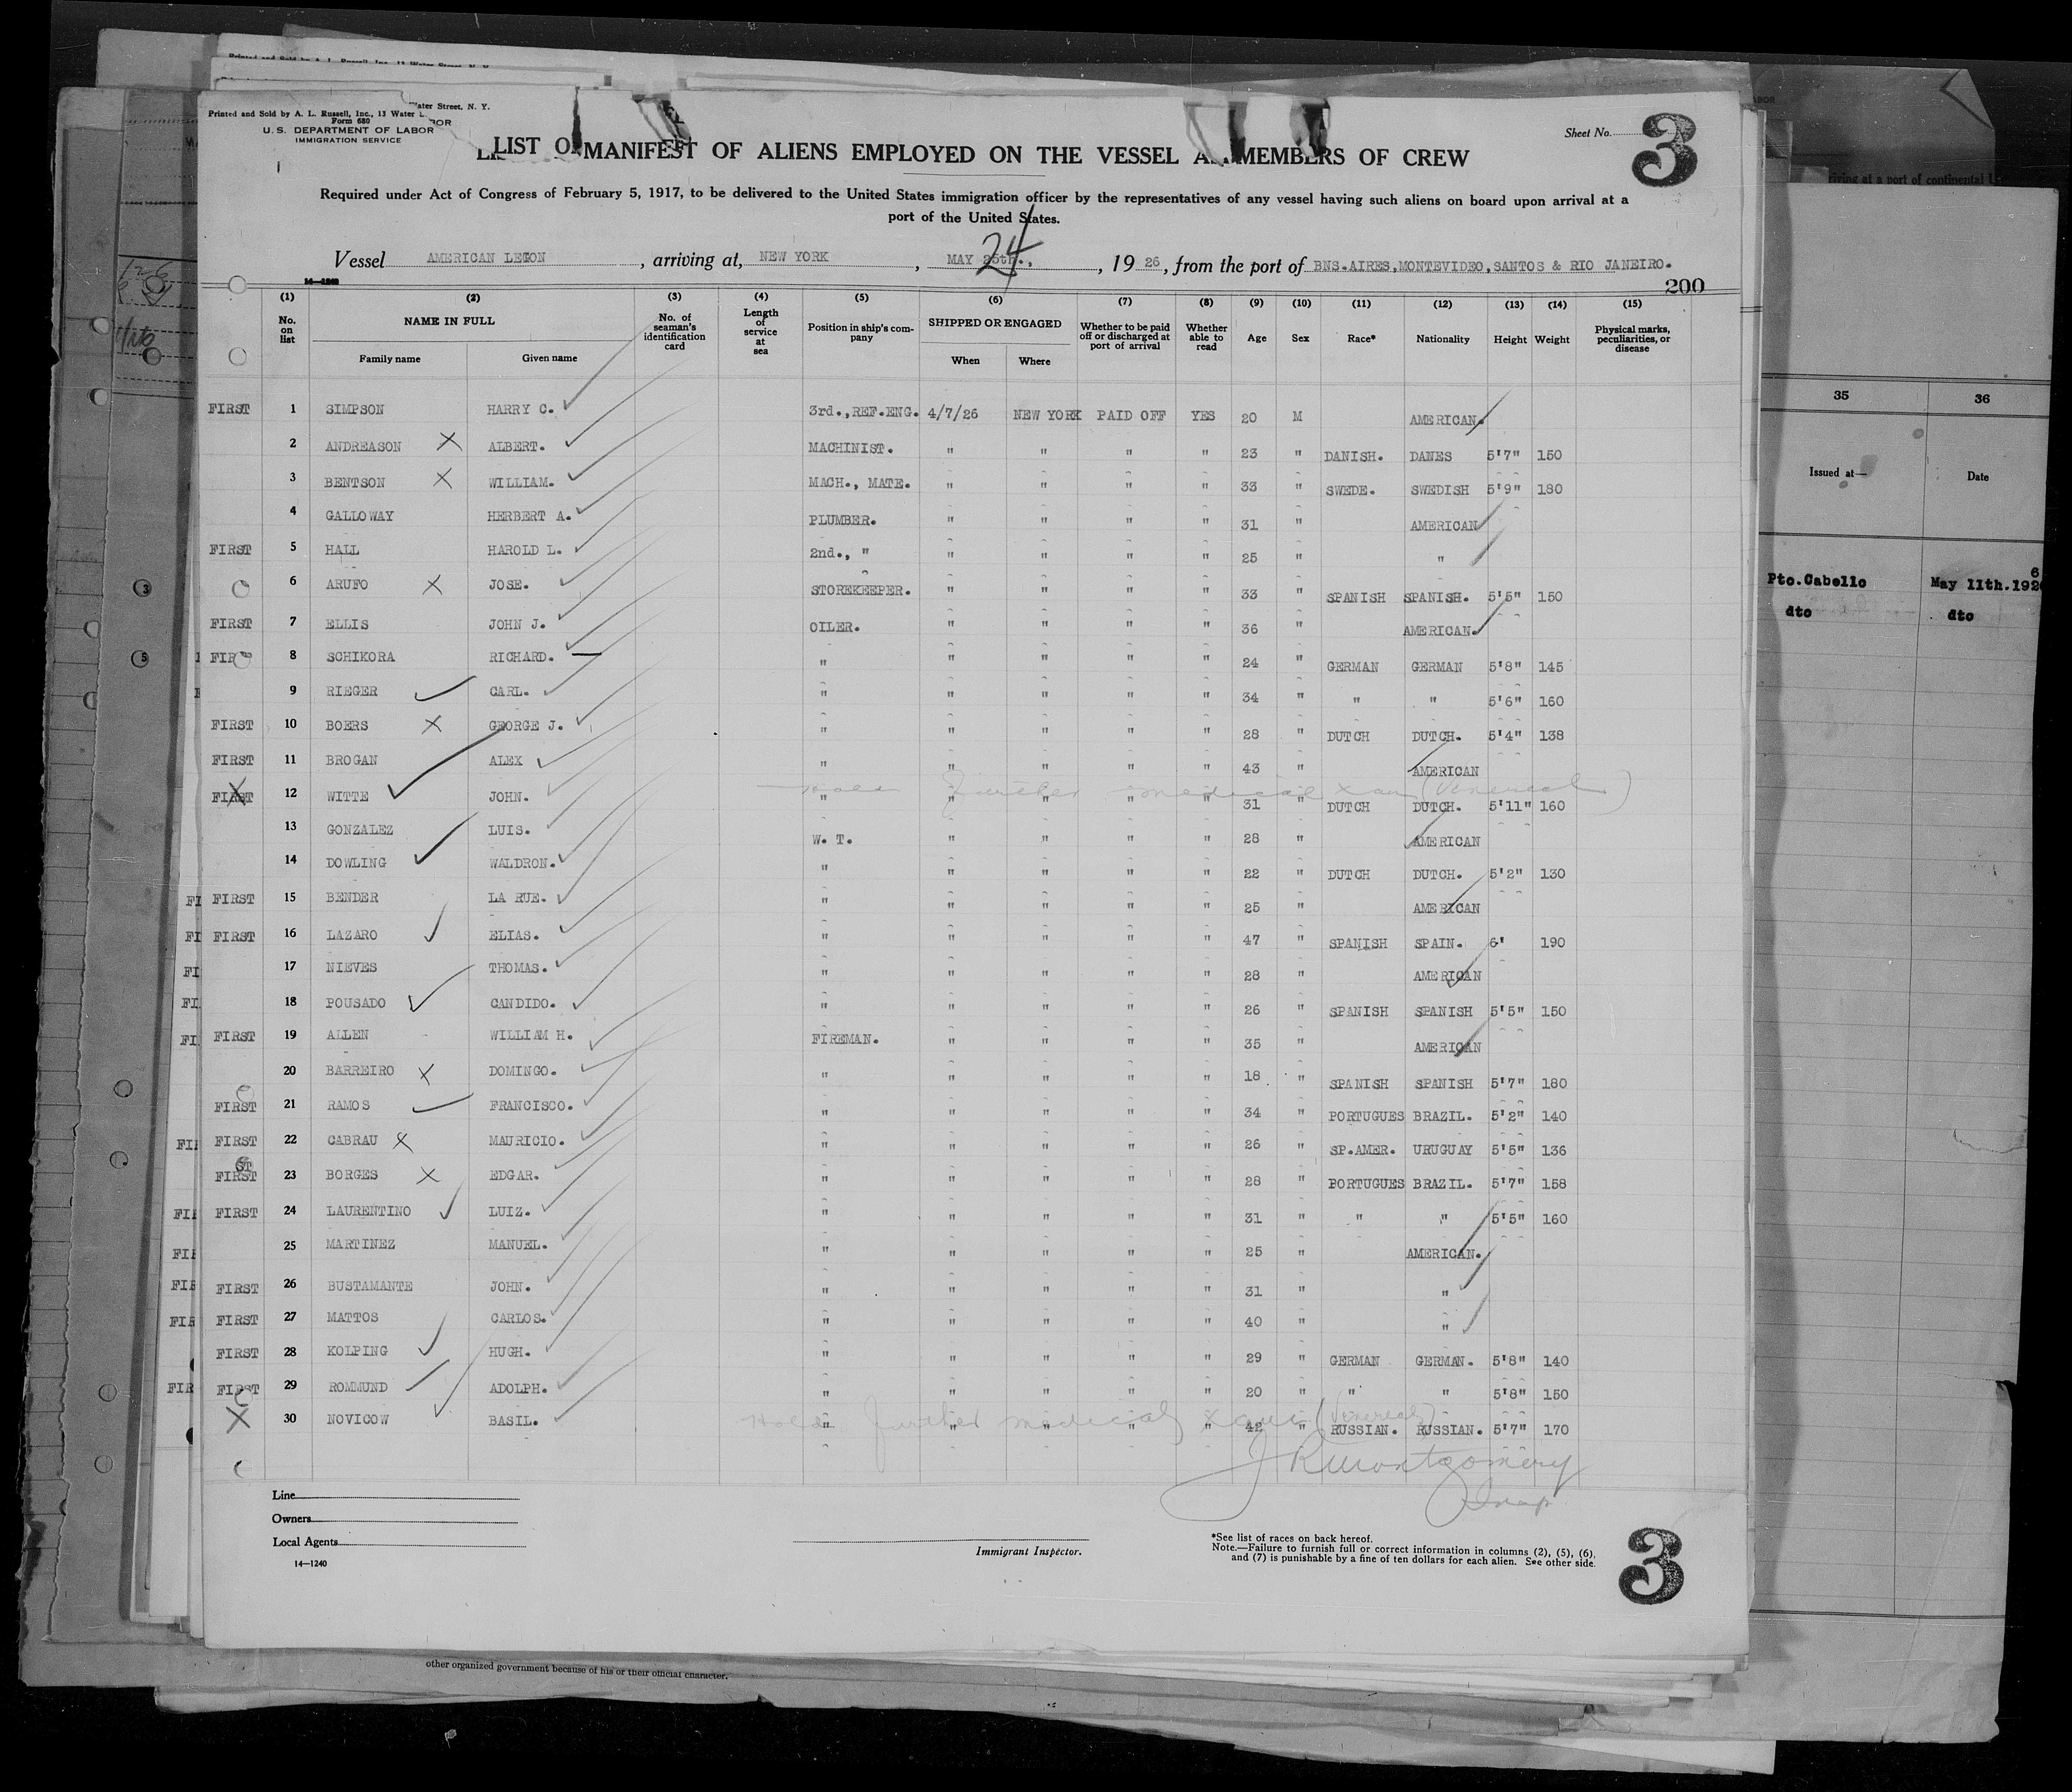 Printed and Sold by A. L. Russell, Inc., 13 Water
Water Street, N. Y.
Form 680
U. S. DEPARTMENT OF LABOR
IMMIGRATION SERVICE
Sheet No. 3
LIST O MANIFEST OF ALIENS EMPLOYED ON THE VESSEL A MEMBERS OF CREW
Required under Act of Congress of February 5, 1917, to be delivered to the United States immigration officer by the representatives of any vessel having such aliens on board upon arrival at a
port of the United States.
Vessel AMERICAN LEGON , arriving at, NEW YORK , MAY 25th., 24 , 19 26 , from the port of BNS.AIRES,MONTEVIDEO,SANTOS & RIO JANEIRO.
14—1240
200
(1) (2) (3) (4) (5) (6) (7) (8) (9) (10) (11) (12) (13) (14) (15)
No. on list NAME IN FULL Family name Given name No. of seaman's identification card Length of service at sea Position in ship's company SHIPPED OR ENGAGED When Where Whether to be paid off or discharged at port of arrival Whether able to read Age Sex Race* Nationality Height Weight Physical marks, peculiarities, or disease
FIRST 1 SIMPSON HARRY C. 3rd.,REF.ENG. 4/7/26 NEW YORK PAID OFF YES 20 M AMERICAN.
2 ANDREASON X ALBERT. MACHINIST. " " " " 23 " DANISH. DANES 5'7" 150
3 BENTSON X WILLIAM. MACH., MATE. " " " " 33 " SWEDE. SWEDISH 5'9" 180
4 GALLOWAY HERBERT A. PLUMBER. " " " " 31 " AMERICAN
FIRST 5 HALL HAROLD L. 2nd., " " " " " 25 " "
6 ARUFO X JOSE. STOREKEEPER. " " " " 33 " SPANISH SPANISH. 5'5" 150
FIRST 7 ELLIS JOHN J. OILER. " " " " 36 " AMERICAN.
FIRST 8 SCHIKORA RICHARD. " " " " " 24 " GERMAN GERMAN 5'8" 145
9 RIEGER CARL. " " " " " 34 " " " 5'6" 160
FIRST 10 BOERS X GEORGE J. " " " " " 28 " DUTCH DUTCH. 5'4" 138
FIRST 11 BROGAN ALEX " " " " " 43 " AMERICAN
Hold further medical xam (Venereal)
FIRST X 12 WITTE JOHN. " " " " " 31 " DUTCH DUTCH. 5'11" 160
13 GONZALEZ LUIS. W. T. " " " " 28 " AMERICAN
14 DOWLING WALDRON. " " " " " 22 " DUTCH DUTCH. 5'2" 130
FIRST 15 BENDER LA RUE. " " " " " 25 " AMERICAN
FIRST 16 LAZARO ELIAS. " " " " " 47 " SPANISH SPAIN. 6' 190
17 NIEVES THOMAS. " " " " " 28 " AMERICAN
18 POUSADO CANDIDO. " " " " " 26 " SPANISH SPANISH 5'5" 150
FIRST 19 ALLEN WILLIAM H. FIREMAN. " " " " 35 " AMERICAN
20 BARREIRO X DOMINGO. " " " " " 18 " SPANISH SPANISH 5'7" 180
FIRST 21 RAMOS FRANCISCO. " " " " " 34 " PORTUGUES BRAZIL. 5'2" 140
FIRST 22 CABRAU X MAURICIO. " " " " " 26 " SP.AMER. URUGUAY 5'5" 136
FIRST 23 BORGES X EDGAR. " " " " " 28 " PORTUGUES BRAZIL. 5'7" 158
FIRST 24 LAURENTINO LUIZ. " " " " " 31 " " " 5'5" 160
25 MARTINEZ MANUEL. " " " " " 25 " AMERICAN.
FIRST 26 BUSTAMANTE JOHN. " " " " " 31 " "
FIRST 27 MATTOS CARLOS. " " " " " 40 " "
FIRST 28 KOLPING HUGH. " " " " " 29 " GERMAN GERMAN. 5'8" 140
FIRST 29 ROMMUND ADOLPH. " " " " " 20 " " " 5'8" 150
Hold further medical xam (Venereal)
X 30 NOVICOW BASIL. " " " " " 42 " RUSSIAN. RUSSIAN. 5'7" 170
J R Montgomery
Insp.
Line
Owners
Local Agents
14—1240
Immigrant Inspector.
*See list of races on back hereof.
Note.—Failure to furnish full or correct information in columns (2), (5), (6),
and (7) is punishable by a fine of ten dollars for each alien. See other side.
3
other organized government because of his or their official character.
35 36
Issued at— Date
Pto.Cabello May 11th.1926
dto dto